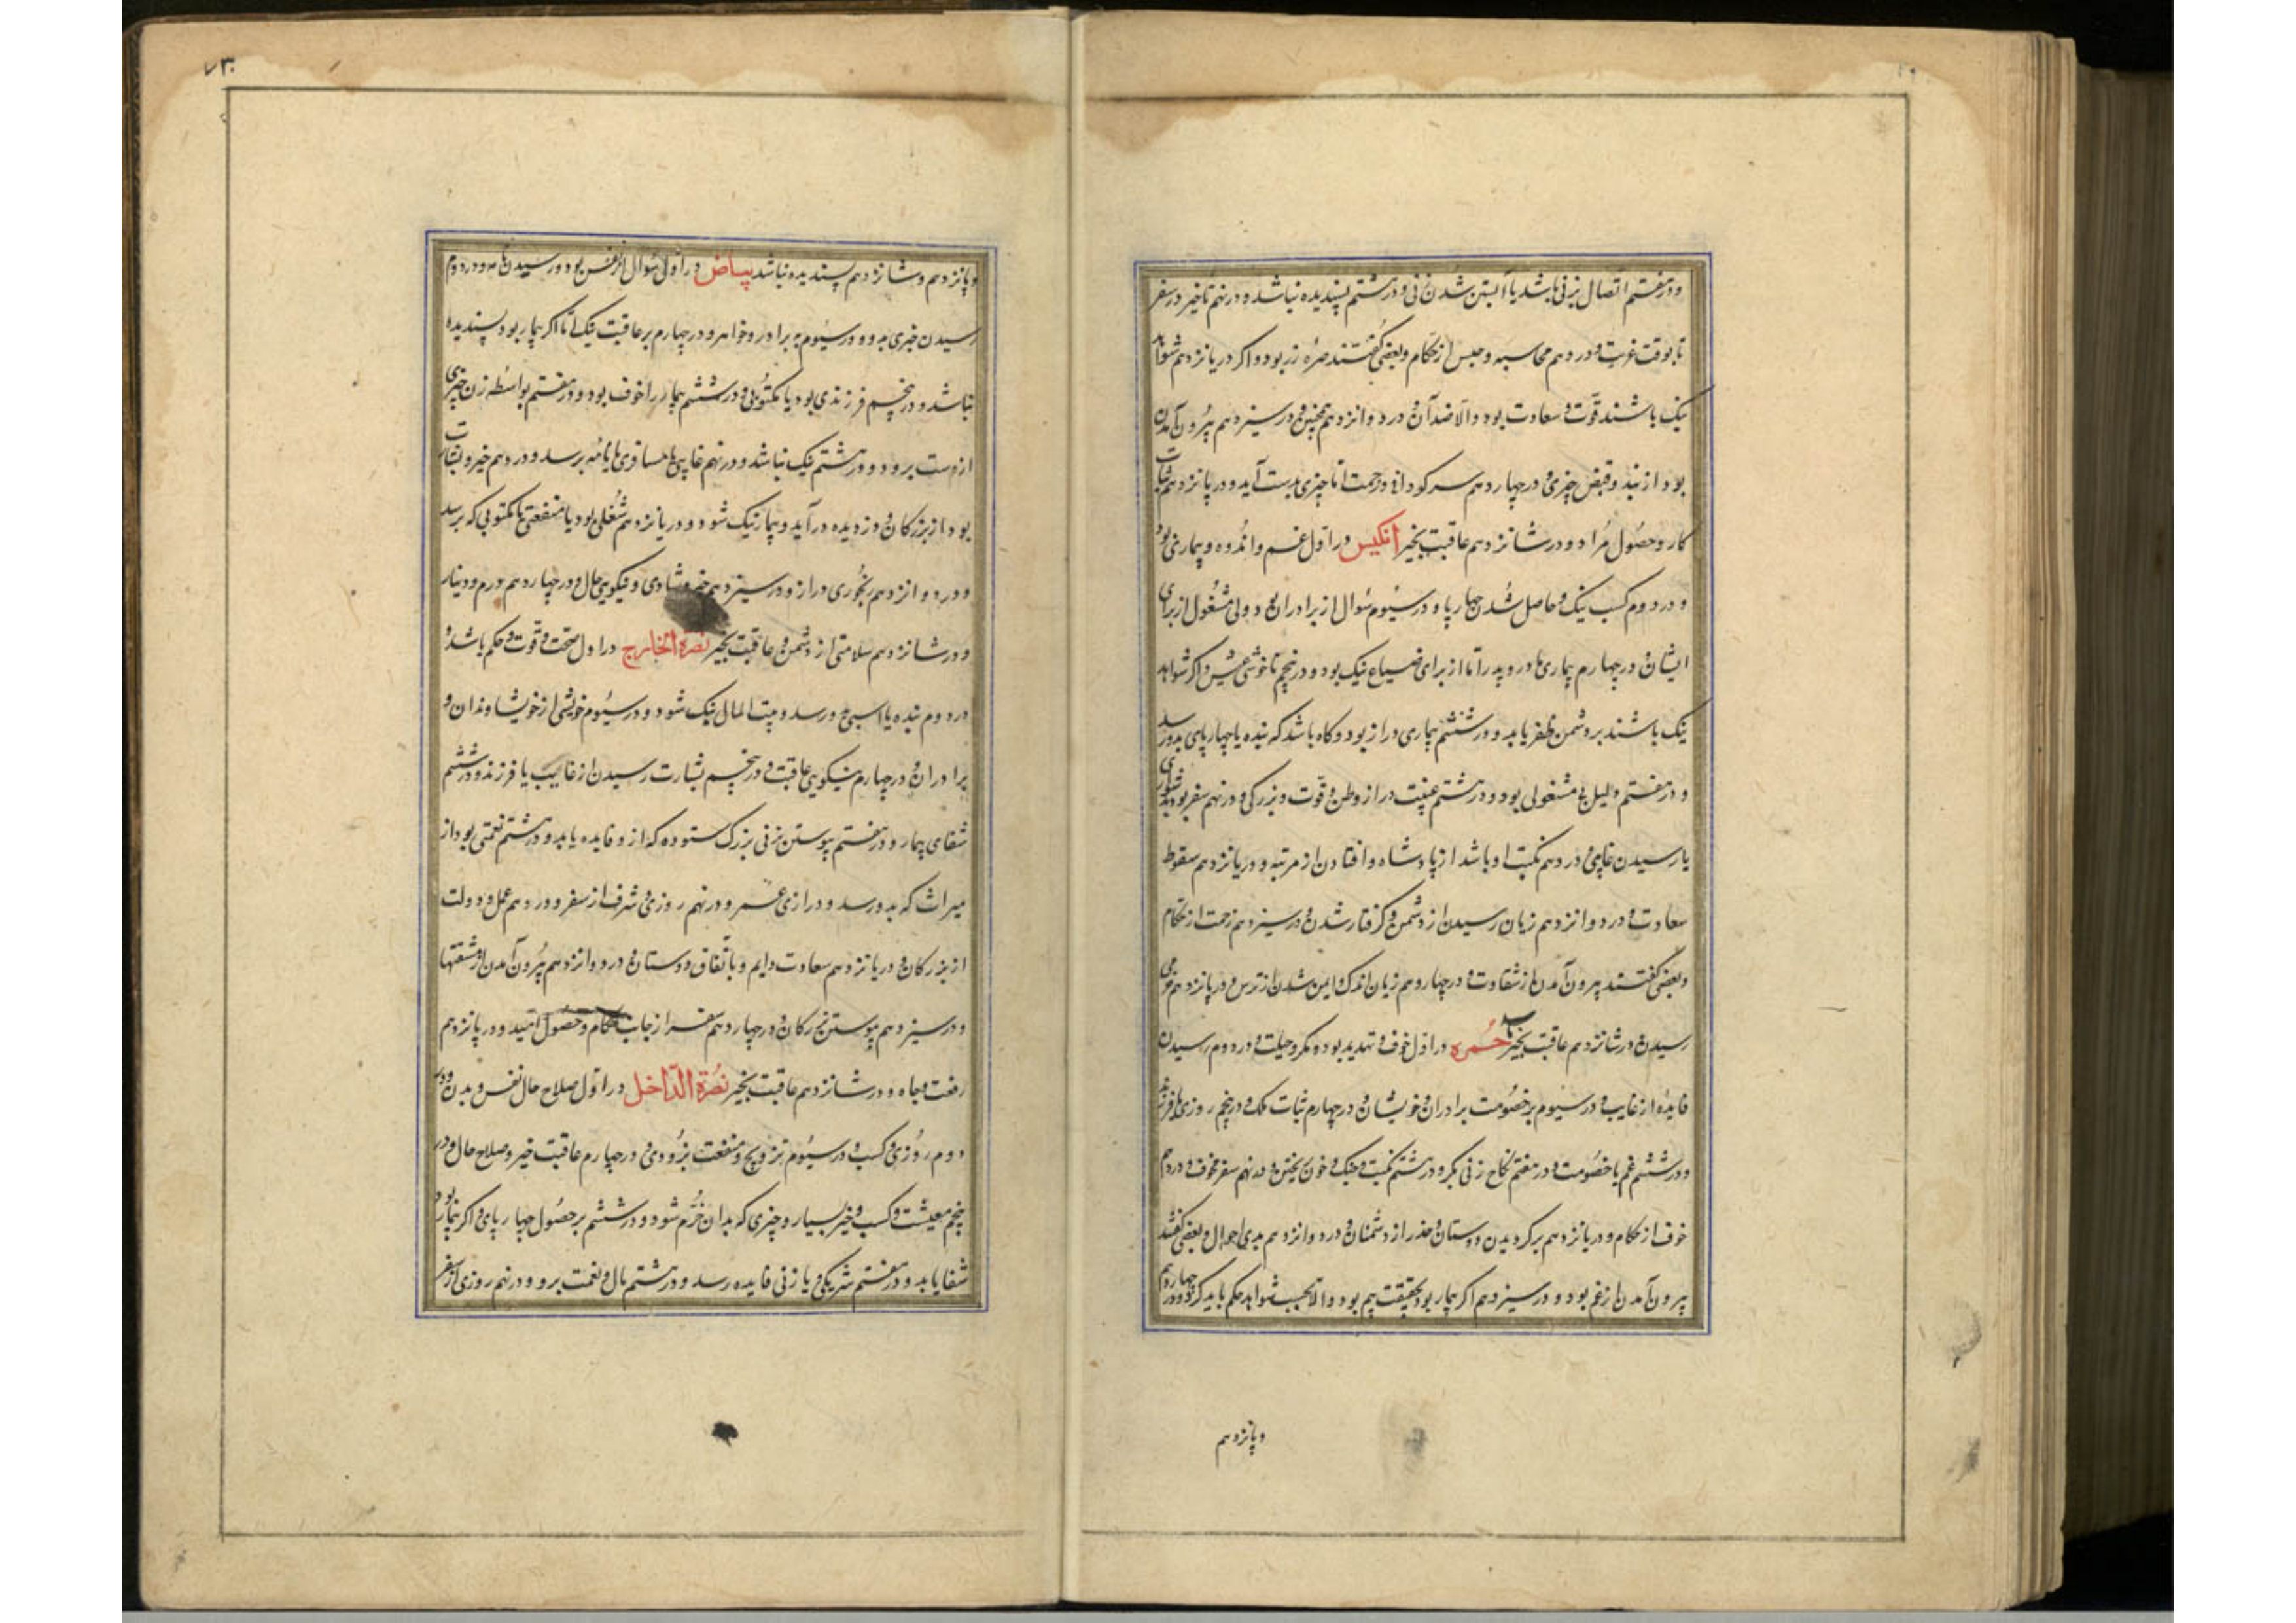 و در هفتم اتصال بزنی باشد یا آبستن شدن زنی و در هشتم پسندیده نباشد و در نهم تاخیر در سفر
تا بوقت غربت و در دهم محاسبه و حبس از حکام و بعضی گفتند صره زر بود و اگر در یازدهم شواهد
نیک باشند قوت و سعادت بود والا ضد آن و در دوازدهم همچنین و در سیزدهم بیرون آمدن
بود از بند و قبض چیزی و در چهاردهم سرگردانی و زحمت اما چیزی بدست آید و در پانزدهم ثبات
کار و حصول مراد و در شانزدهم عاقبت بخیر انکیس در اول غم و اندوه و بیماری بود
و در دوم کسب نیک و حاصل شدن چهارپا و در سیوم سوال از برادران بود و دلی مشغول از برای
ایشان و در چهارم بیماری مادر و پدر اما از برای ضیاع نیک بود و در پنجم ناخوشی عیش و اگر شواهد
نیک باشند بر دشمن ظفر یابد و در ششم بیماری دراز بود و گاه باشد که بنده یا چهارپای بدو رسد
و در هفتم دلیل بی مشغولی بود و در هشتم غیبت دراز از وطن و قوت و بزرگی و در نهم سفر بود بدشواری
یا رسیدن غایبی و در دهم نکبت او باشد از پادشاه و افتادن از مرتبه و در یازدهم سقوط
سعادت و در دوازدهم زیان رسیدن از دشمن و گرفتار شدن و در سیزدهم زحمت از حکام
و بعضی گفتند بیرون آمدن از شقاوت و در چهاردهم زیان اندک و ایمن شدن از ترس و در پانزدهم
رسیدن و در شانزدهم عاقبت بخیر حمره در اول خوف و تهدید بود و مکر و حیلت و در دوم رسیدن
فایده از غایب و در سیوم بر خصومت برادران و خویشان و در چهارم ثبات ملک و در پنجم روزی یا فرزند
و در ششم غم یا خصومت و در هفتم نکاح زنی بکر و در هشتم نکبت و جنگ و خون ریختن و در نهم سفر مخوف و در دهم
خوف از حکام و در یازدهم برگردیدن دوستان و حذر از دشمنان و در دوازدهم بدی احوال و بعضی گفتند
بیرون آمدن از غم بود و در سیزدهم اگر بیمار بود بحقیقت بیم بود والا بحسب شواهد حکم باید کرد و در چهاردهم
و پانزدهم
۷۳
و پانزدهم و شانزدهم پسندیده نباشد بیاض در اول سوال از نفس بود و رسیدن نامه و در دوم
رسیدن خیری بدو و در سیوم به برادر و خواهر و در چهارم بر عاقبت نیک اما اگر بیمار بود پسندیده
نباشد و در پنجم فرزندی بود یا مکتوبی و در ششم بیمار را خوف بود و در هفتم بواسطه زن چیزی
از دست برود و در هشتم نیک نباشد و در نهم غایبی یا مسافری یا نامه برسد و در دهم خیر و بشارت
بود از بزرگان و دزدیده درآید و بیمار نیک شود و در یازدهم شغلی بود یا منفعتی یا مکتوبی که برسد
و در دوازدهم رنجوری دراز و در سیزدهم خیر و شادی و نیکویی حال و در چهاردهم درم و دینار
و در شانزدهم سلامتی از دشمن و عاقبت بخیر نصرة الخارج در اول صحت و قوت و حکم باشد و
در دوم بنده یا اسبی بدو رسد و بیت المال نیک شود و در سیوم خویشی از خویشاوندان و
برادران و در چهارم نیکویی عاقبت و در پنجم بشارت رسیدن از غایب یا فرزند و در ششم
شفای بیمار و در هفتم پیوستن بزنی بزرگ ستوده که از و فایده یابد و در هشتم نعمتی بود از
میراث که بدو رسد و درازی عمر و در نهم روزی و شرف از سفر و در دهم عمل و دولت
از بزرگان و در یازدهم سعادت دایم و باتفاق دوستان و در دوازدهم بیرون آمدن از مشقتها
و در سیزدهم پیوستن ببزرگان و در چهاردهم سفر از جانب حکام و حصول امید و در پانزدهم
رفعت و جاه و در شانزدهم عاقبت بخیر نصرة الداخل در اول صلاح حال نفس و بدن و در
دوم روزی و کسب و در سیوم تزویج و منفعت بزودی و در چهارم عاقبت خیر و صلاح حال و در
پنجم معیشت و کسب و خیر بسیار و چیزی که بدان خرم شود و در ششم بر حصول چهارپای و اگر بیمار بود
شفا یابد و در هفتم شریکی یا زنی فایده رسد و در هشتم مال و نعمت برو و در نهم روزی از سفر